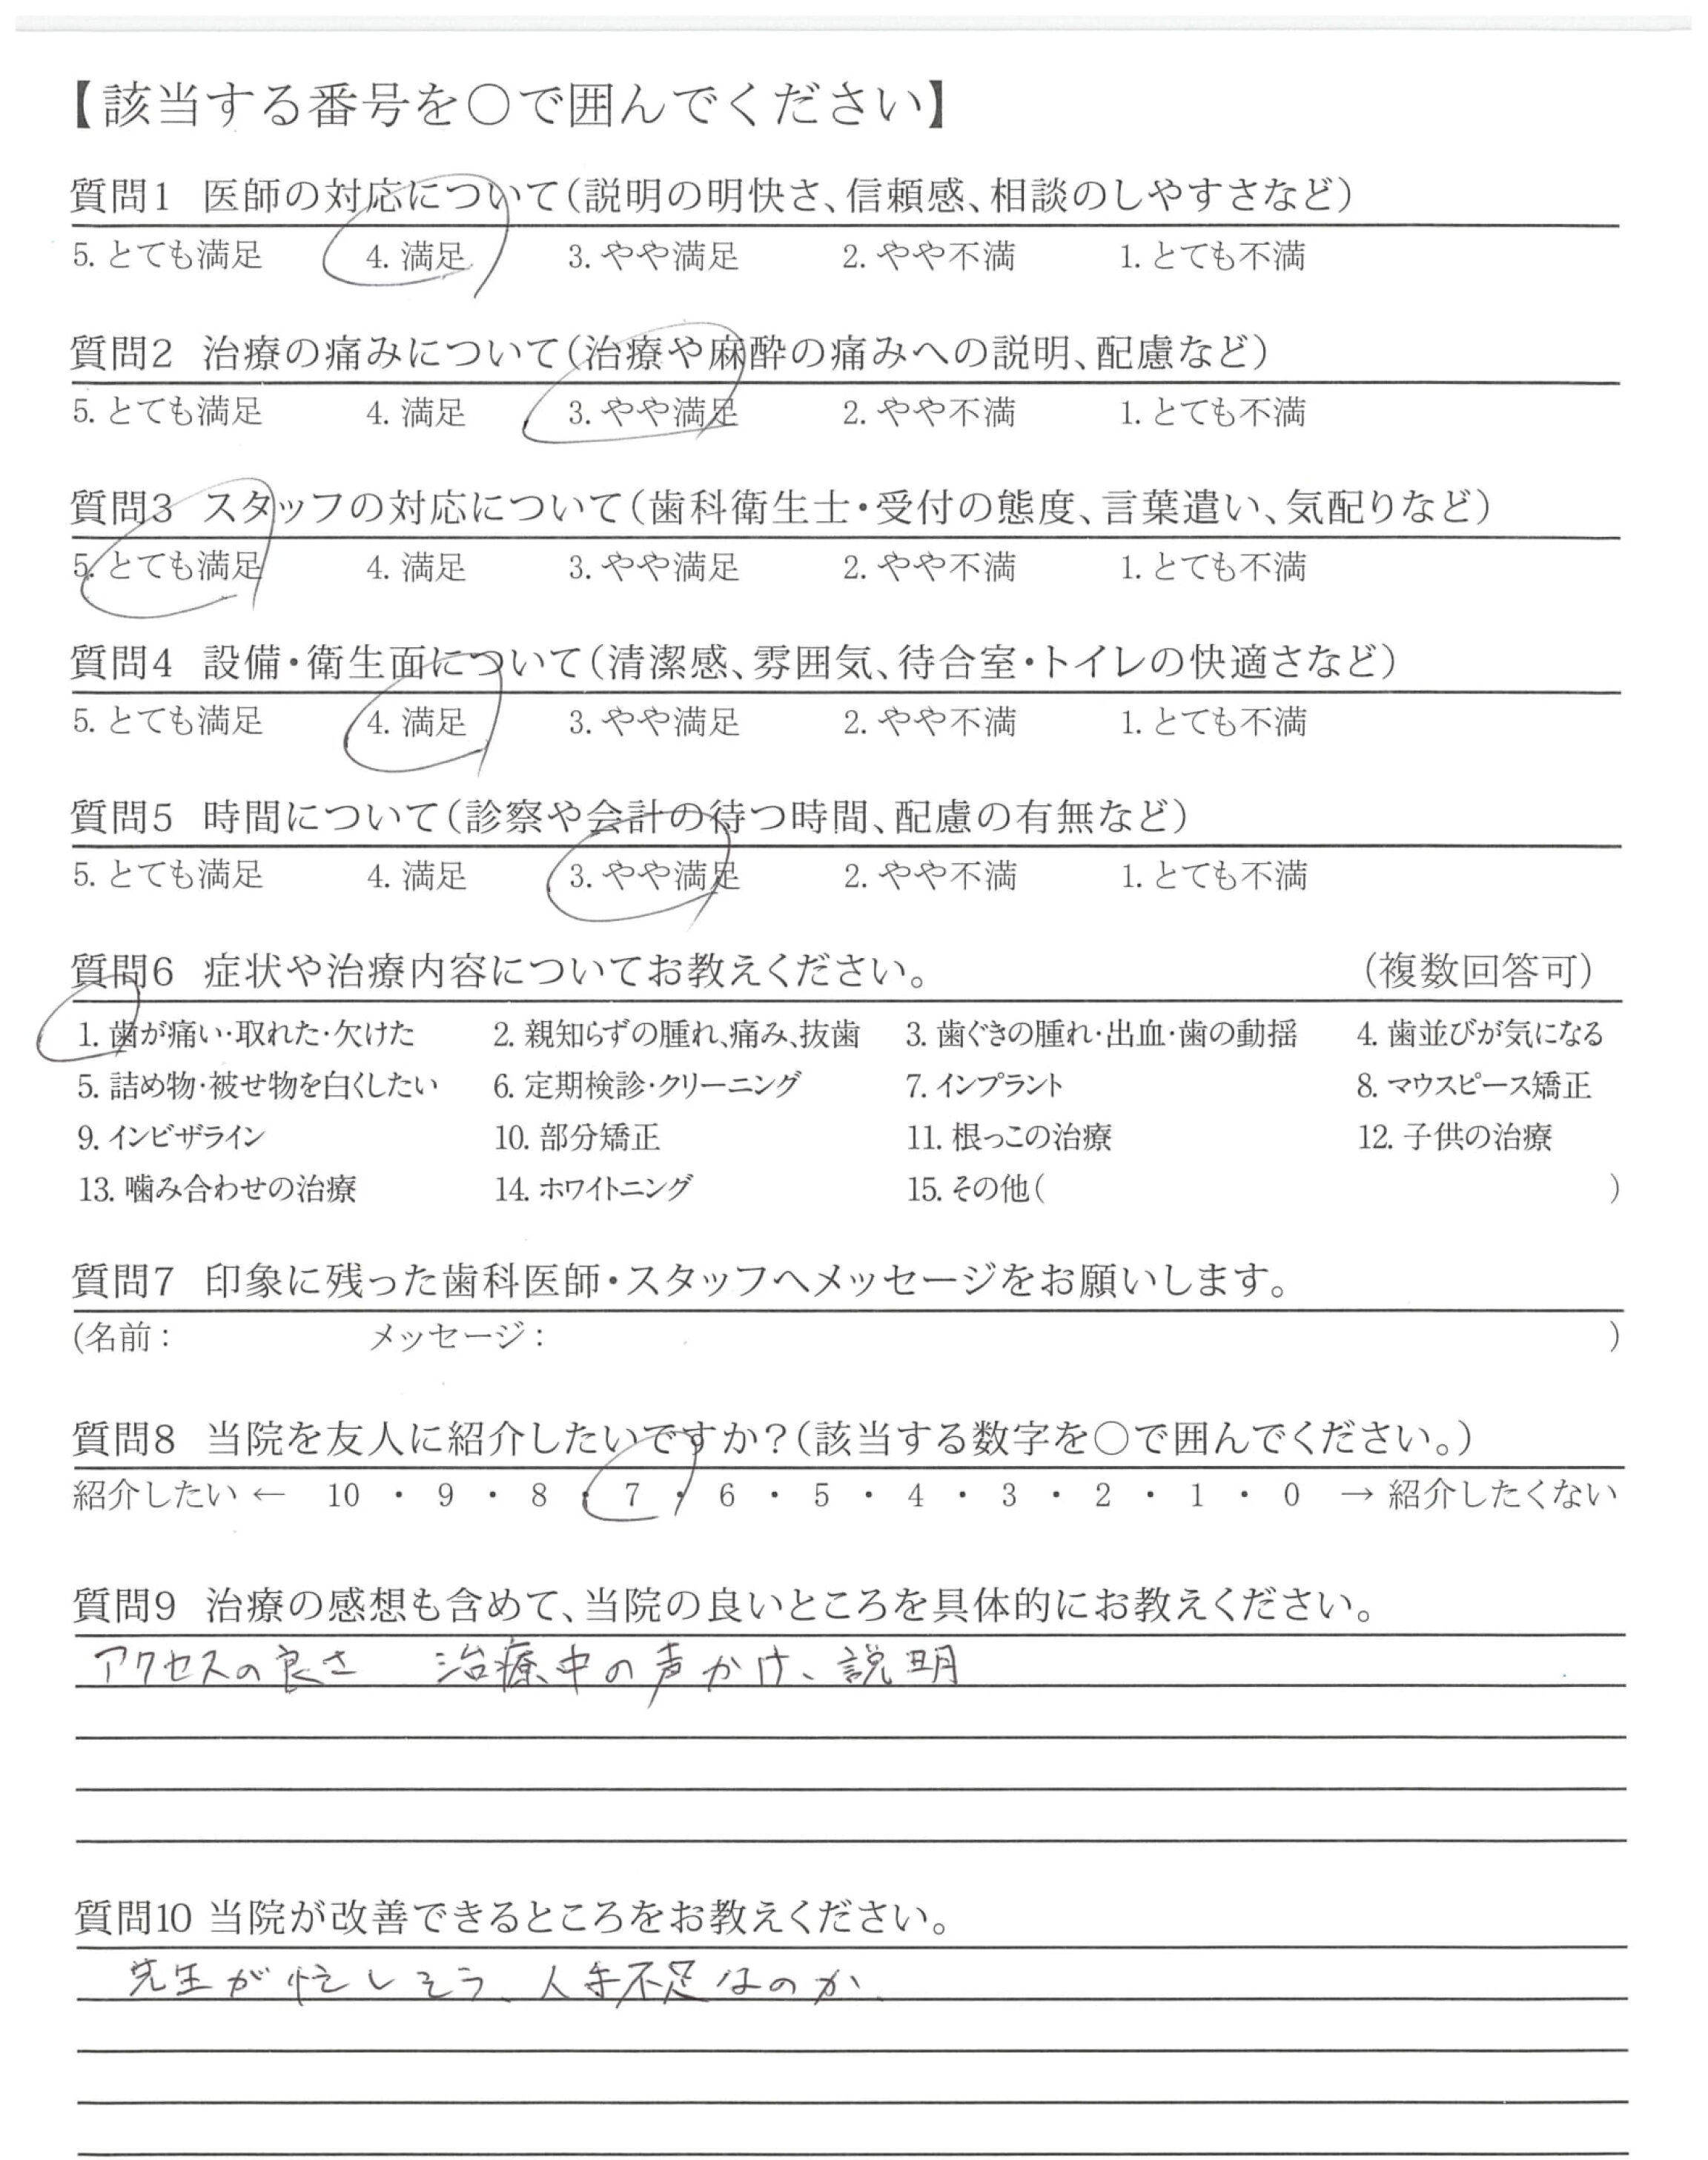 【該当する番号を○で囲んでください】
質問1 医師の対応について（説明の明快さ、信頼感、相談のしやすさなど）
5. とても満足 4. 満足 3. やや満足 2. やや不満 1. とても不満
質問2 治療の痛みについて（治療や麻酔の痛みへの説明、配慮など）
5. とても満足 4. 満足 3. やや満足 2. やや不満 1. とても不満
質問3 スタッフの対応について（歯科衛生士・受付の態度、言葉遣い、気配りなど）
5. とても満足 4. 満足 3. やや満足 2. やや不満 1. とても不満
質問4 設備・衛生面について（清潔感、雰囲気、待合室・トイレの快適さなど）
5. とても満足 4. 満足 3. やや満足 2. やや不満 1. とても不満
質問5 時間について（診察や会計の待つ時間、配慮の有無など）
5. とても満足 4. 満足 3. やや満足 2. やや不満 1. とても不満
質問6 症状や治療内容についてお教えください。 （複数回答可）
1. 歯が痛い・取れた・欠けた 2. 親知らずの腫れ、痛み、抜歯 3. 歯ぐきの腫れ・出血・歯の動揺 4. 歯並びが気になる
5. 詰め物・被せ物を白くしたい 6. 定期検診・クリーニング 7. インプラント 8. マウスピース矯正
9. インビザライン 10. 部分矯正 11. 根っこの治療 12. 子供の治療
13. 噛み合わせの治療 14. ホワイトニング 15. その他（ ）
質問7 印象に残った歯科医師・スタッフへメッセージをお願いします。
（名前： メッセージ： ）
質問8 当院を友人に紹介したいですか？（該当する数字を○で囲んでください。）
紹介したい ← 10 ・ 9 ・ 8 ・ 7 ・ 6 ・ 5 ・ 4 ・ 3 ・ 2 ・ 1 ・ 0 → 紹介したくない
質問9 治療の感想も含めて、当院の良いところを具体的にお教えください。
アクセスの良さ 治療中の声かけ、説明
質問10 当院が改善できるところをお教えください。
先生が忙しそう、人手不足なのか、